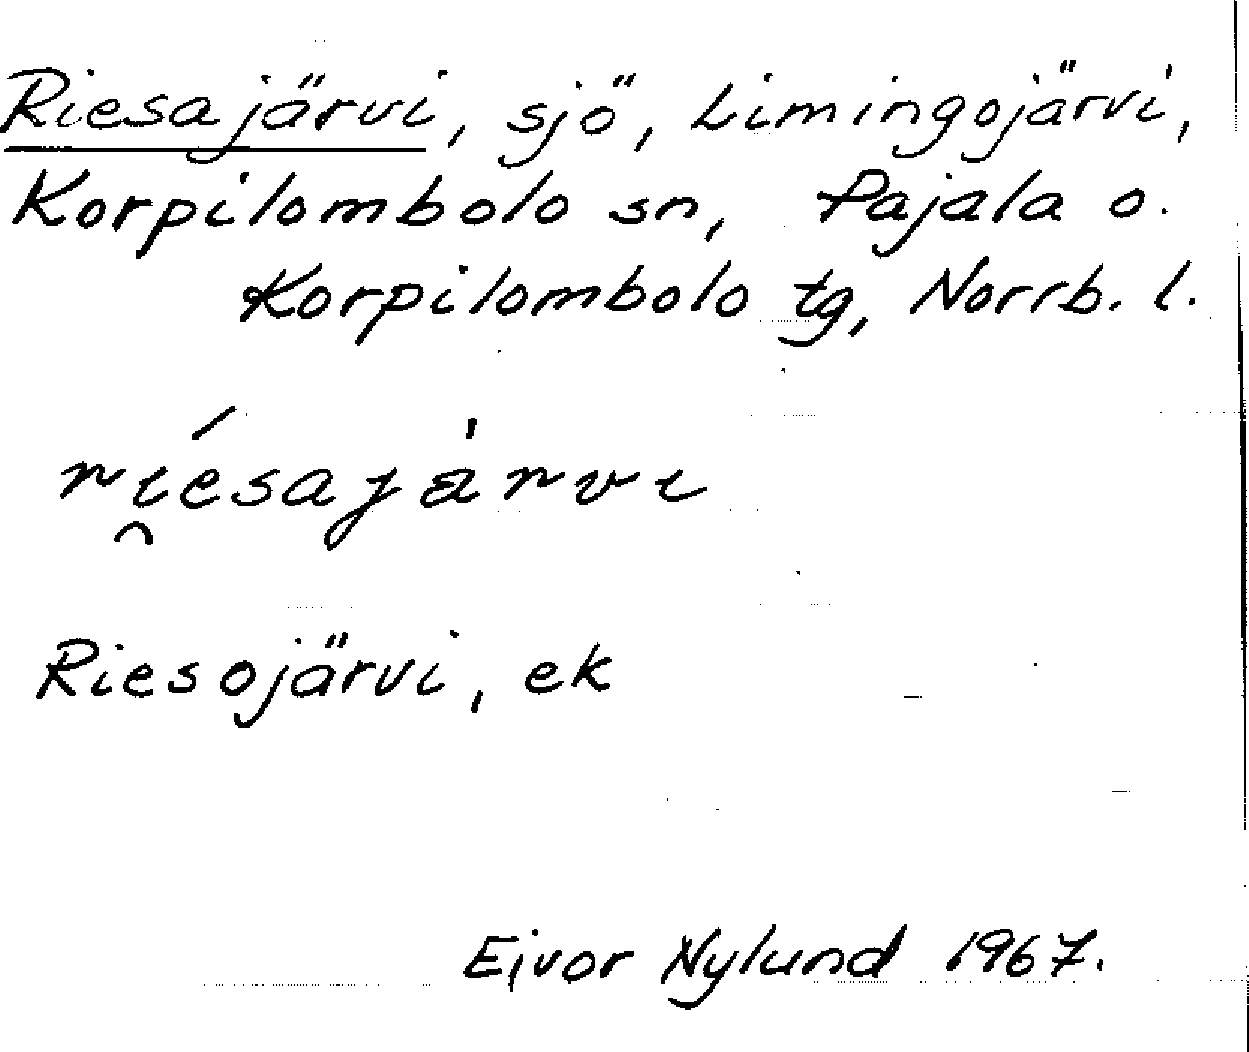 Riesajärvi, sjö, Limingojärvi,
Korpilombolo sn, Pajala o.
Korpilombolo tg, Norrb. l.
ri̯ésajàrvi
Riesojärvi, ek
Eivor Nylund 1967.